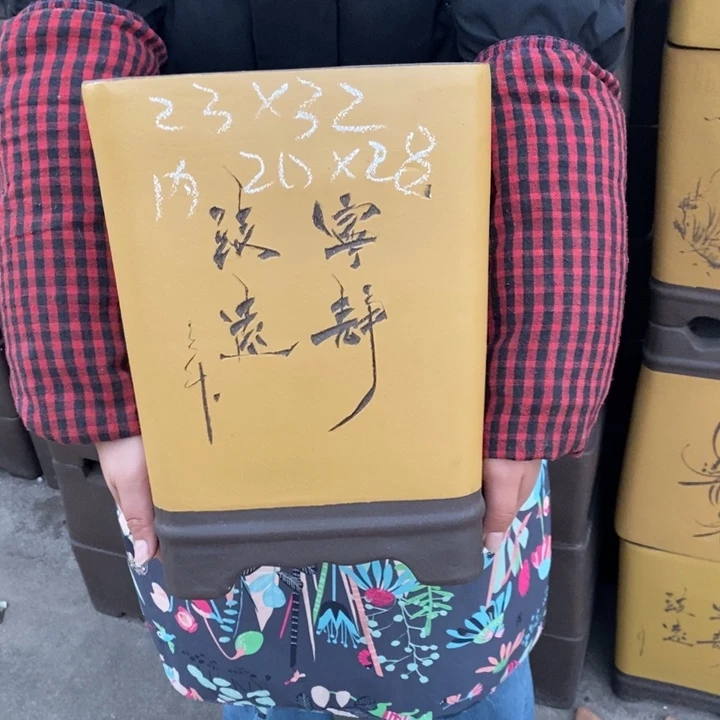 23×32
内 20×28
寧静
致遠